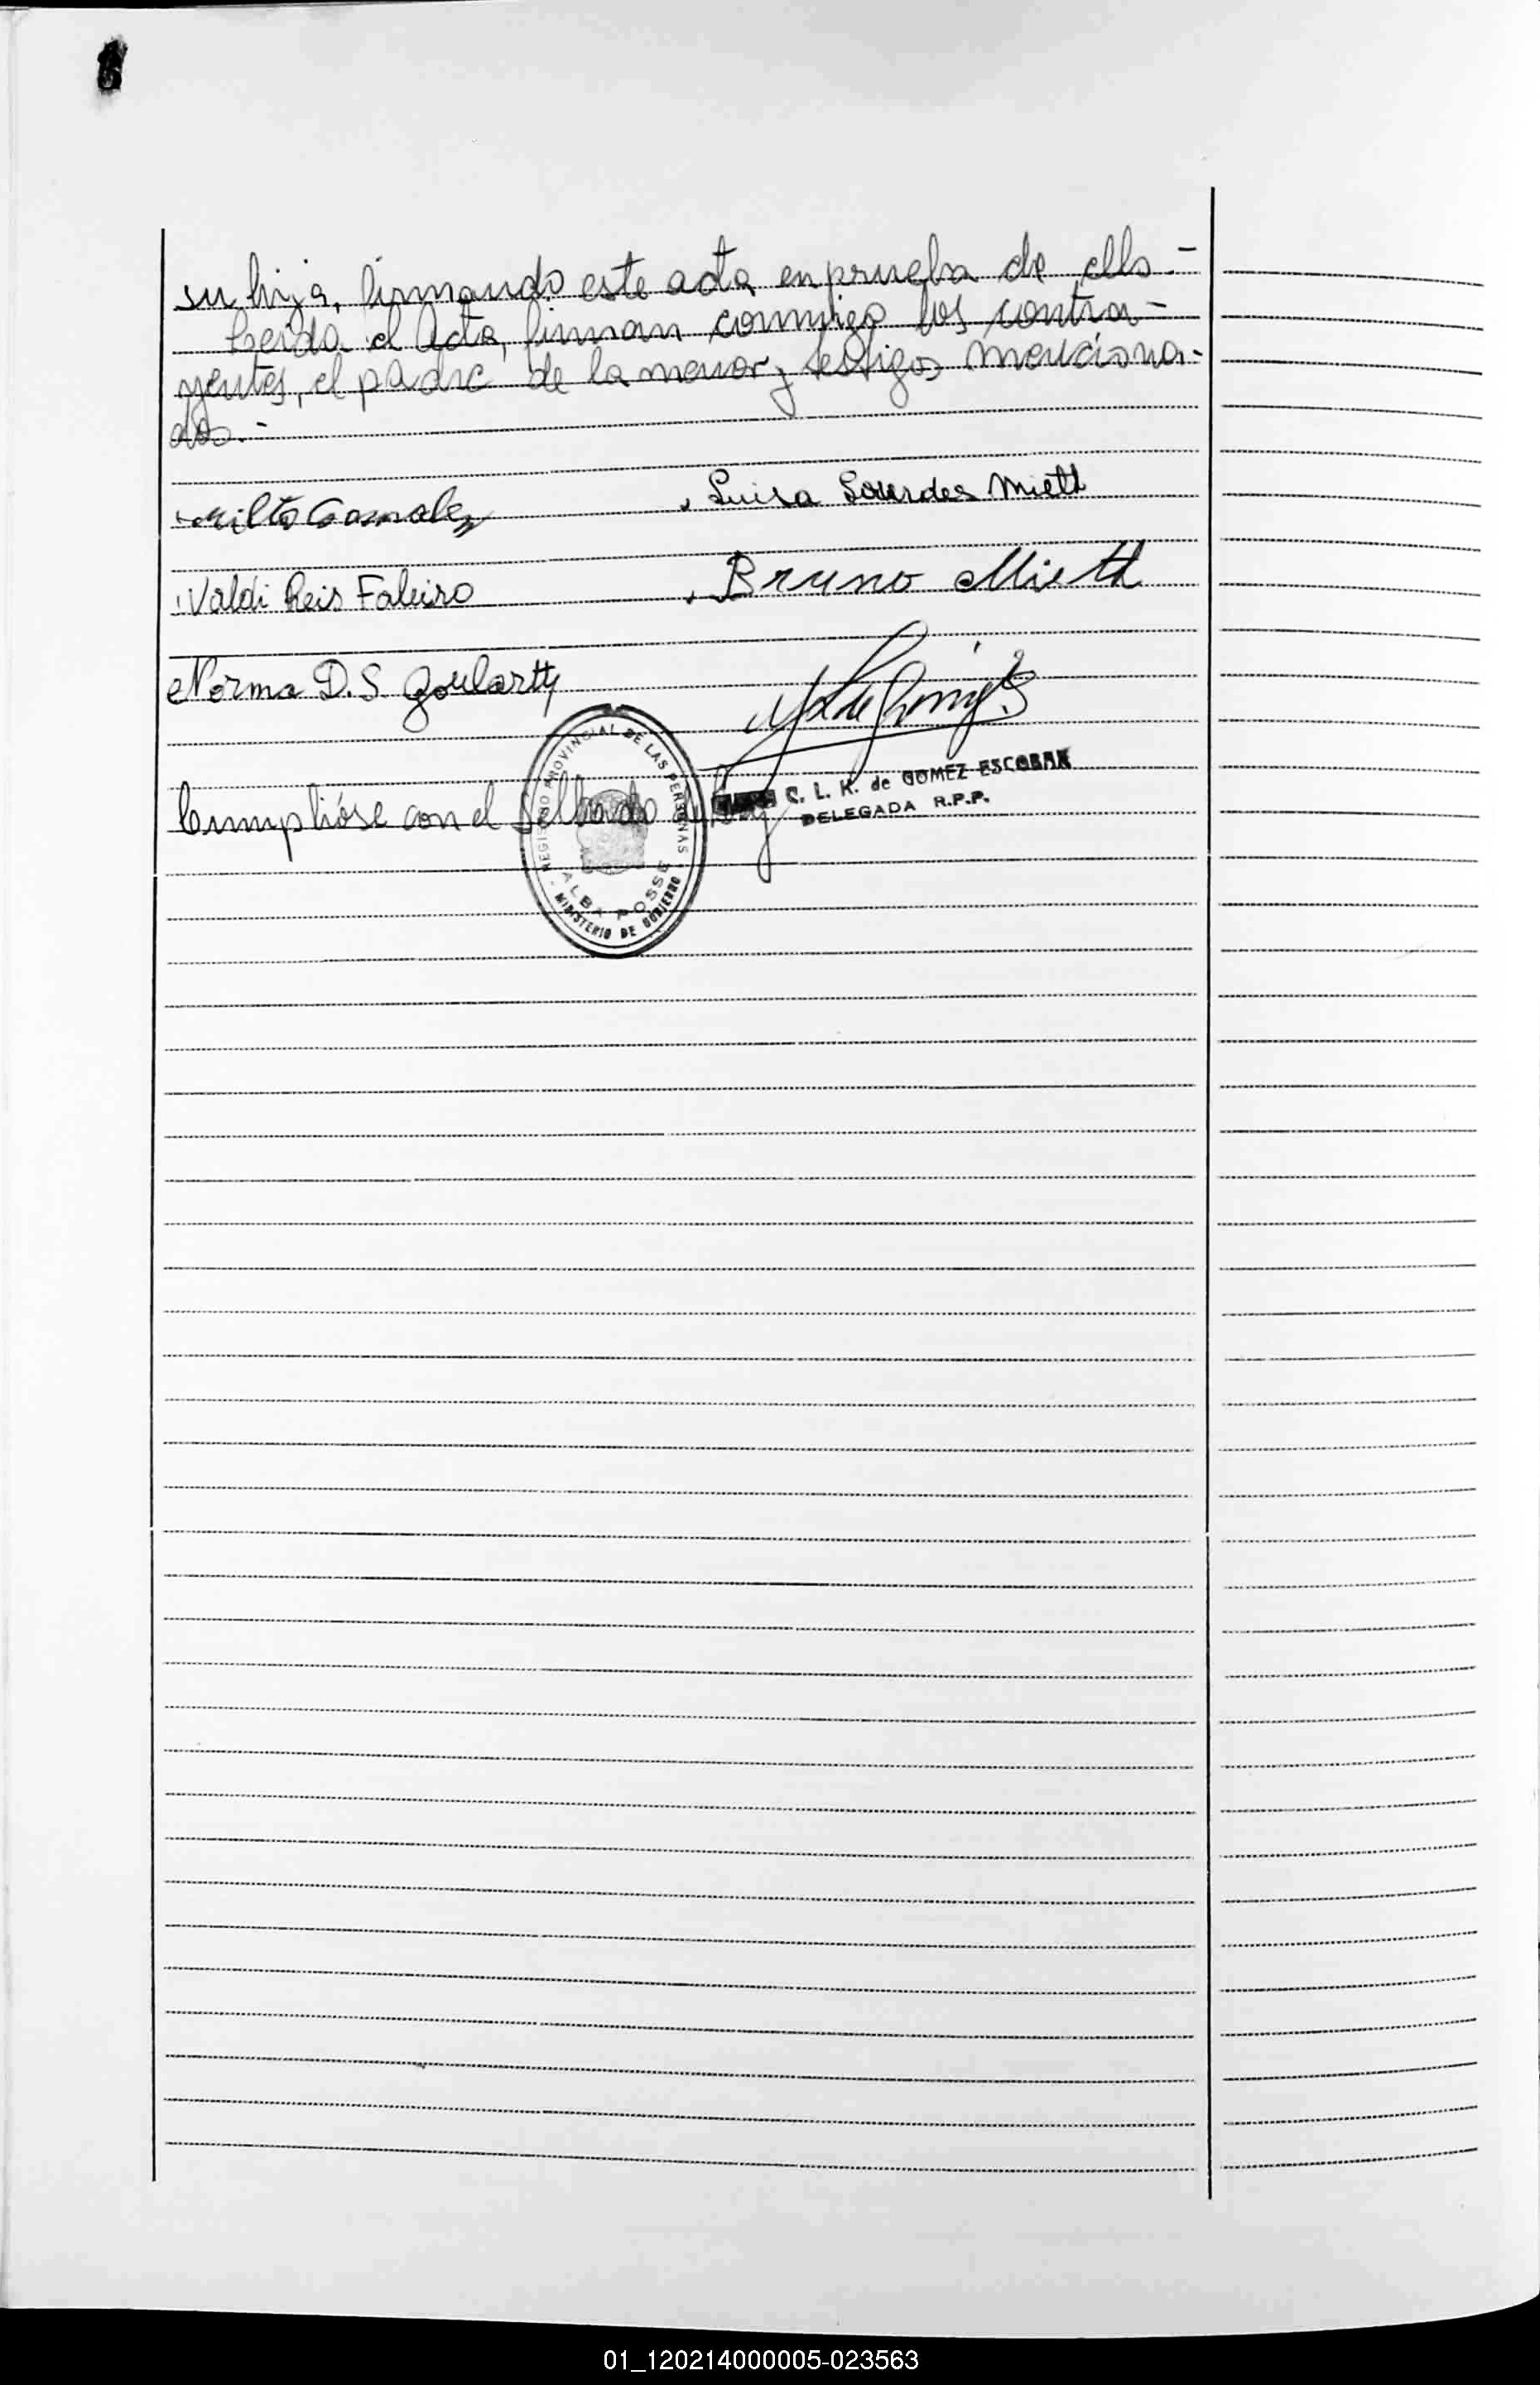 su hija, firmando este acta en prueba de ello.-
Leida el Acta, firman conmigo los contra-
yentes, el padre de la menor y testigos menciona-
dos.-
Milto Gonzalez
Luisa Lourdes Miett
Valdi Reis Faleiro
Bruno Miett
Norma D.S. Goulartt
C. L. K. de GOMEZ ESCOBAR
DELEGADA R.P.P.
Cumplióse con el sellado de ley
REGISTRO PROVINCIAL DE LAS PERSONAS
ALBA POSSE
MINISTERIO DE GOBIERNO
01_120214000005-023563